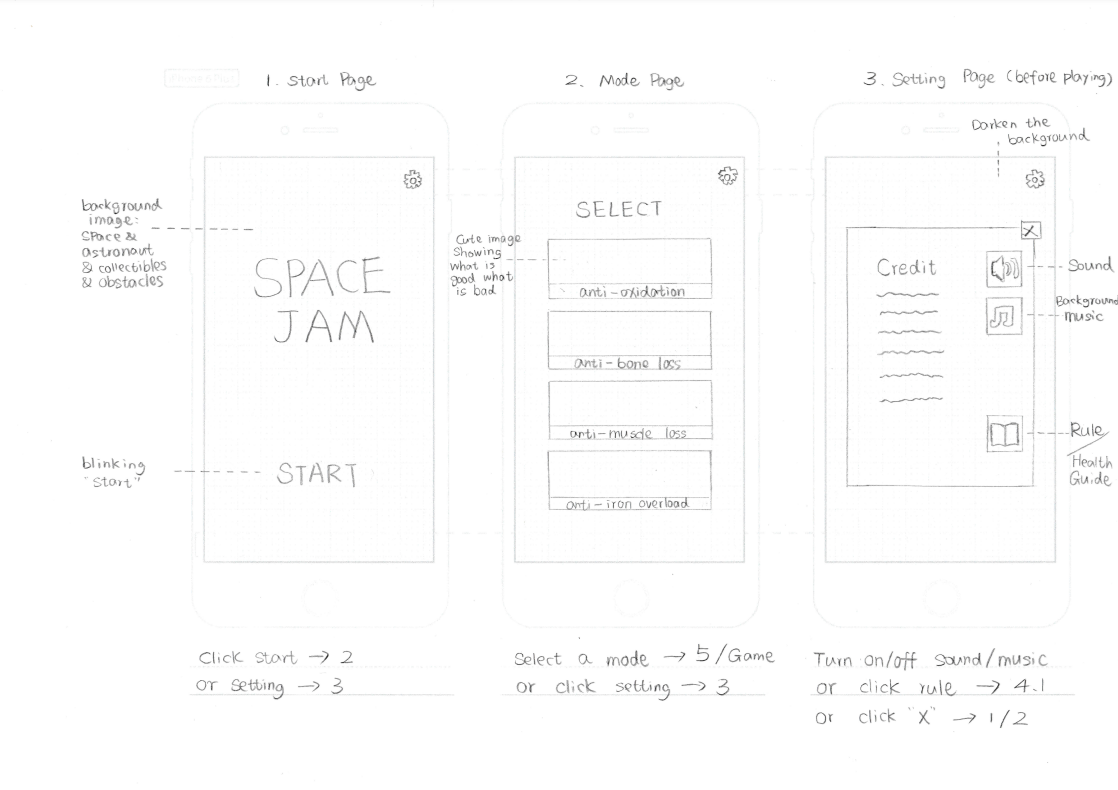 1. Start Page
background
image:
Space &
astronaut
& collectibles
& obstacles
SPACE
JAM
blinking
"Start"
START
Click start → 2
or Setting → 3
2. Mode Page
SELECT
Cute image
Showing
what is
good what
is bad
anti-oxidation
anti-bone loss
anti-muscle loss
anti-iron overload
Select a mode → 5/Game
or click setting → 3
3. Setting Page (before playing)
Darken the
background
X
Credit
Sound
Background
music
Rule/
Health
Guide
Turn on/off sound/music
or click rule → 4.1
or click "X" → 1/2